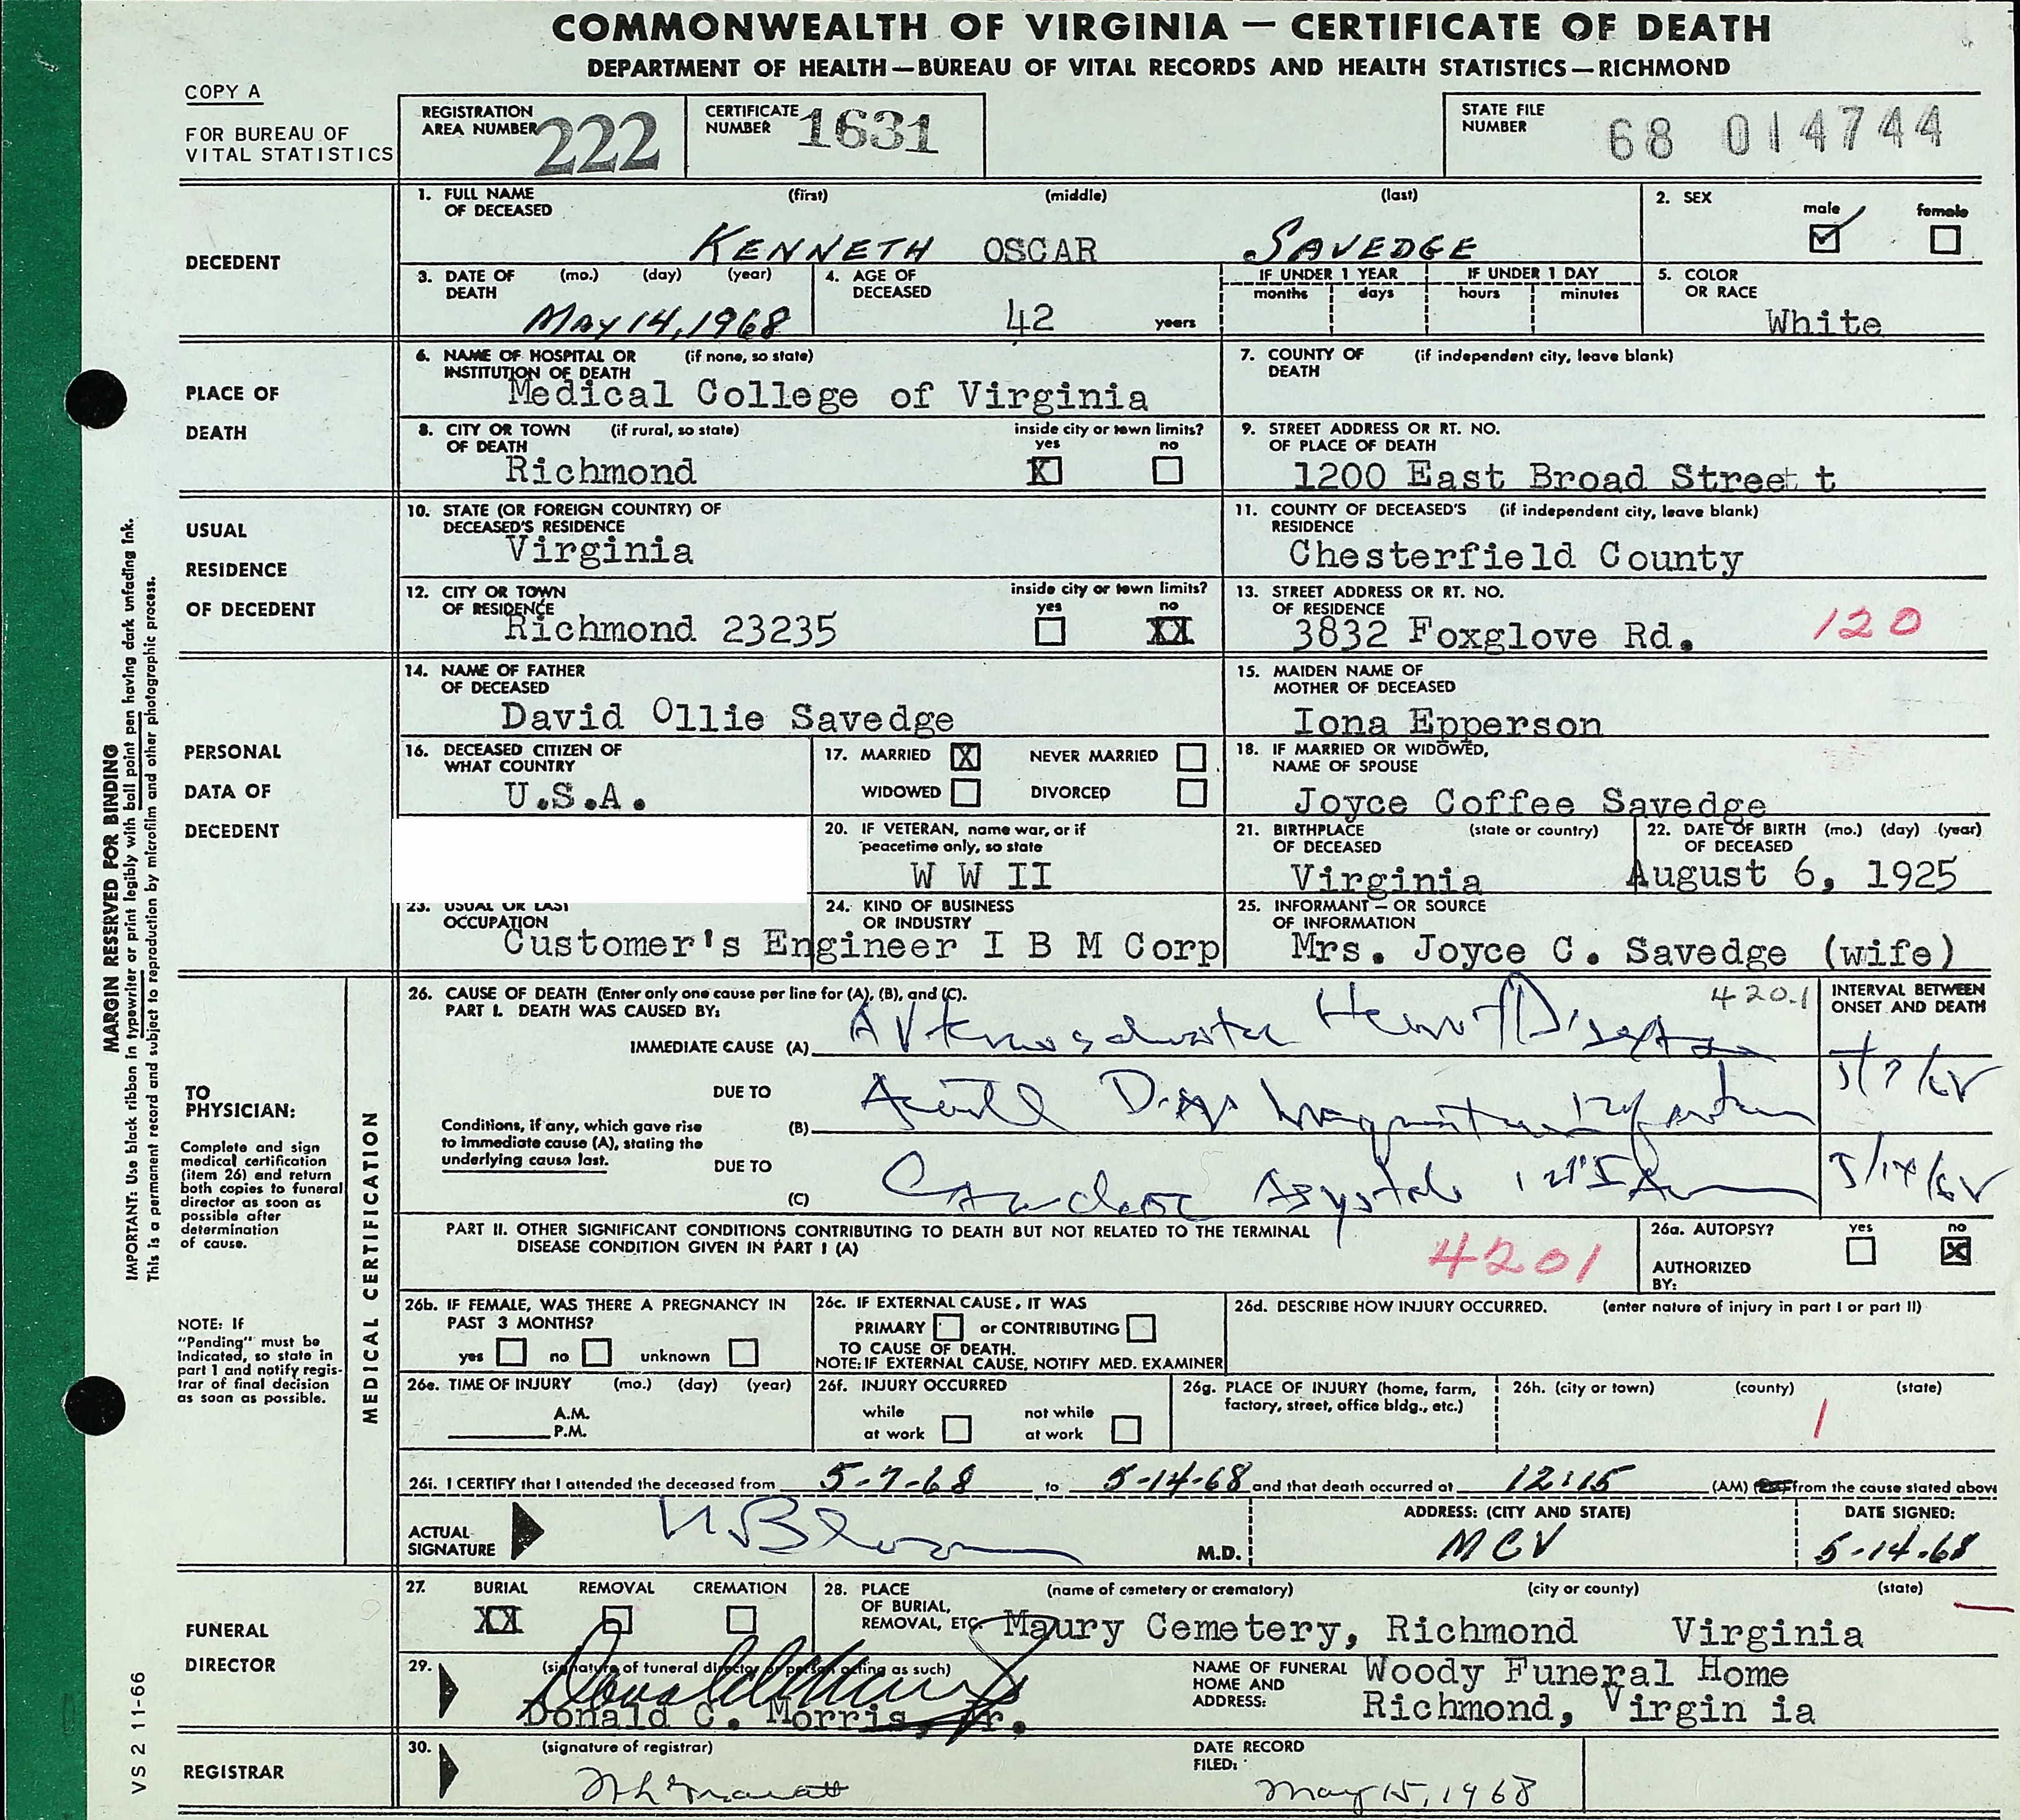 COMMONWEALTH OF VIRGINIA — CERTIFICATE OF DEATH
DEPARTMENT OF HEALTH—BUREAU OF VITAL RECORDS AND HEALTH STATISTICS—RICHMOND
COPY A
FOR BUREAU OF
VITAL STATISTICS
REGISTRATION
AREA NUMBER 222
CERTIFICATE
NUMBER 1631
STATE FILE
NUMBER 68 014744
DECEDENT
1. FULL NAME (first) (middle) (last)
OF DECEASED
KENNETH OSCAR SAVEDGE
2. SEX male female
3. DATE OF (mo.) (day) (year)
DEATH
May 14, 1968
4. AGE OF
DECEASED
42 years
IF UNDER 1 YEAR IF UNDER 1 DAY
months days hours minutes
5. COLOR
OR RACE
White
PLACE OF
DEATH
6. NAME OF HOSPITAL OR (if none, so state)
INSTITUTION OF DEATH
Medical College of Virginia
7. COUNTY OF (if independent city, leave blank)
DEATH
8. CITY OR TOWN (if rural, so state) inside city or town limits?
OF DEATH yes no
Richmond X
9. STREET ADDRESS OR RT. NO.
OF PLACE OF DEATH
1200 East Broad Stree t
USUAL
RESIDENCE
OF DECEDENT
10. STATE (OR FOREIGN COUNTRY) OF
DECEASED'S RESIDENCE
Virginia
11. COUNTY OF DECEASED'S (if independent city, leave blank)
RESIDENCE
Chesterfield County
12. CITY OR TOWN inside city or town limits?
OF RESIDENCE yes no
Richmond 23235 XX
13. STREET ADDRESS OR RT. NO.
OF RESIDENCE
3832 Foxglove Rd. 120
PERSONAL
DATA OF
DECEDENT
14. NAME OF FATHER
OF DECEASED
David Ollie Savedge
15. MAIDEN NAME OF
MOTHER OF DECEASED
Iona Epperson
16. DECEASED CITIZEN OF
WHAT COUNTRY
U.S.A.
17. MARRIED X NEVER MARRIED
WIDOWED DIVORCED
18. IF MARRIED OR WIDOWED,
NAME OF SPOUSE
Joyce Coffee Savedge
20. IF VETERAN, name war, or if
peacetime only, so state
W W II
21. BIRTHPLACE (state or country)
OF DECEASED
Virginia
22. DATE OF BIRTH (mo.) (day) (year)
OF DECEASED
August 6, 1925
23. USUAL OR LAST
OCCUPATION
Customer's Engineer
24. KIND OF BUSINESS
OR INDUSTRY
I B M Corp
25. INFORMANT — OR SOURCE
OF INFORMATION
Mrs. Joyce C. Savedge (wife)
MEDICAL CERTIFICATION
TO
PHYSICIAN:
Complete and sign
medical certification
(item 26) end return
both copies to funeral
director as soon as
possible after
determination
of cause.
NOTE: If
"Pending" must be
indicated, so state in
part 1 and notify regis-
trar of final decision
as soon as possible.
26. CAUSE OF DEATH (Enter only one cause per line for (A), (B), and (C).
PART I. DEATH WAS CAUSED BY:
420.1
INTERVAL BETWEEN
ONSET AND DEATH
IMMEDIATE CAUSE (A) Heart Disease
DUE TO
Conditions, if any, which gave rise
to immediate cause (A), stating the
underlying cause last.
(B) Acute
5/7/68
DUE TO
(C) Cardiac Asystole
5/14/68
PART II. OTHER SIGNIFICANT CONDITIONS CONTRIBUTING TO DEATH BUT NOT RELATED TO THE TERMINAL
DISEASE CONDITION GIVEN IN PART I (A)
4201
26a. AUTOPSY? yes no
X
AUTHORIZED
BY:
26b. IF FEMALE, WAS THERE A PREGNANCY IN
PAST 3 MONTHS?
yes no unknown
26c. IF EXTERNAL CAUSE, IT WAS
PRIMARY or CONTRIBUTING
TO CAUSE OF DEATH.
NOTE: IF EXTERNAL CAUSE, NOTIFY MED. EXAMINER
26d. DESCRIBE HOW INJURY OCCURRED. (enter nature of injury in part I or part II)
26e. TIME OF INJURY (mo.) (day) (year)
A.M.
P.M.
26f. INJURY OCCURRED
while not while
at work at work
26g. PLACE OF INJURY (home, farm,
factory, street, office bldg., etc.)
26h. (city or town) (county) (state)
1
26i. I CERTIFY that I attended the deceased from 5-7-68 to 5-14-68 and that death occurred at 12:15 (AM) from the cause stated above
ACTUAL
SIGNATURE
M.D.
ADDRESS: (CITY AND STATE)
MCV
DATE SIGNED:
5-14-68
FUNERAL
DIRECTOR
27. BURIAL REMOVAL CREMATION
XX
28. PLACE (name of cemetery or crematory) (city or county) (state)
OF BURIAL,
REMOVAL, ETC. Maury Cemetery, Richmond Virginia
29. (signature of funeral director or person acting as such)
Donald C. Morris, Jr.
NAME OF FUNERAL
HOME AND
ADDRESS:
Woody Funeral Home
Richmond, Virgin ia
REGISTRAR
30. (signature of registrar)
DATE RECORD
FILED:
May 15, 1968
MARGIN RESERVED FOR BINDING
IMPORTANT: Use black ribbon in typewriter or print legibly with ball point pen having dark unfading ink.
This is a permanent record and subject to reproduction by microfilm and other photographic process.
VS 2 11-66